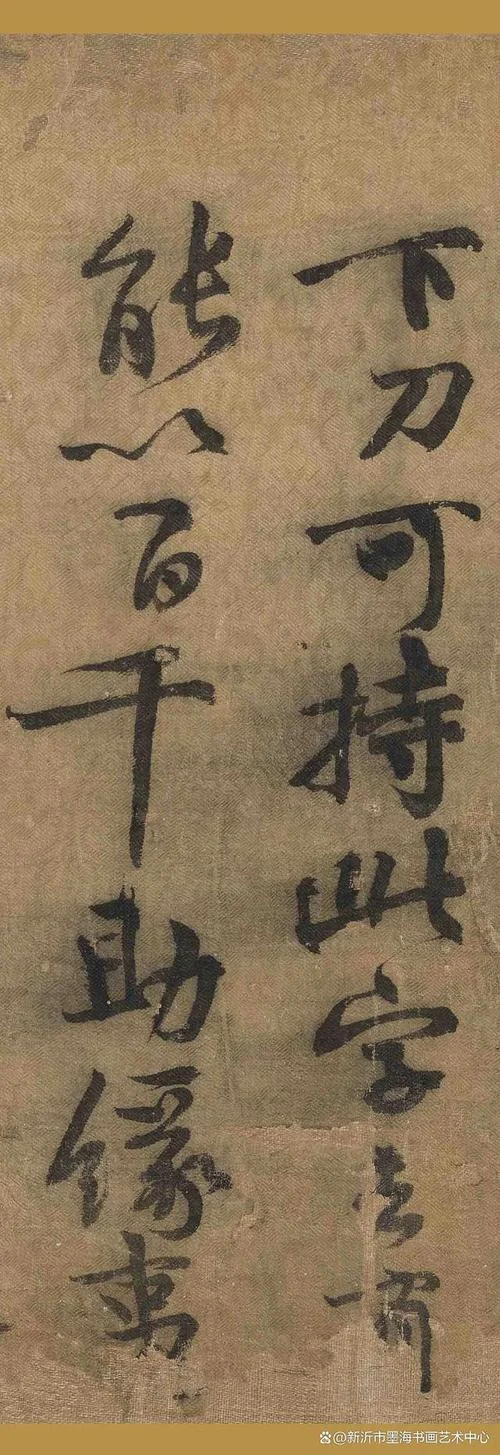 下刀可持此字去
能以百千助緣
@新沂市墨海书画艺术中心